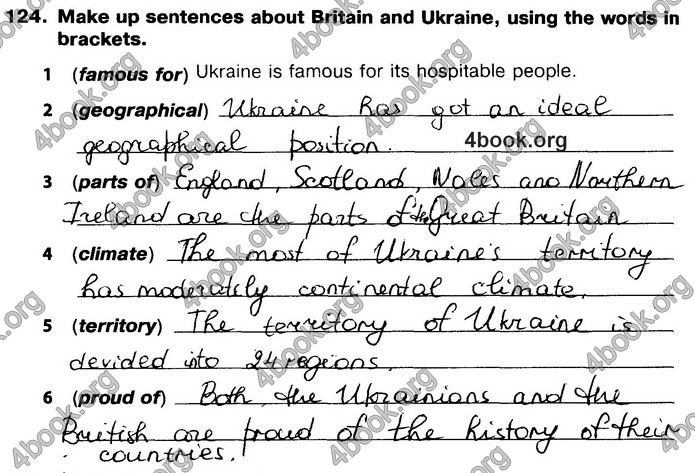 124. Make up sentences about Britain and Ukraine, using the words in
brackets.
1 (famous for) Ukraine is famous for its hospitable people.
2 (geographical) Ukraine has got an ideal
geographical position. 4book.org
3 (parts of) England, Scotland, Wales and Northern
Ireland are the parts of the Great Britain
4 (climate) The most of Ukraine's territory
has moderately continental climate.
5 (territory) The territory of Ukraine is
devided into 24 regions.
6 (proud of) Both the Ukrainians and the
British are proud of the history of their
countries.